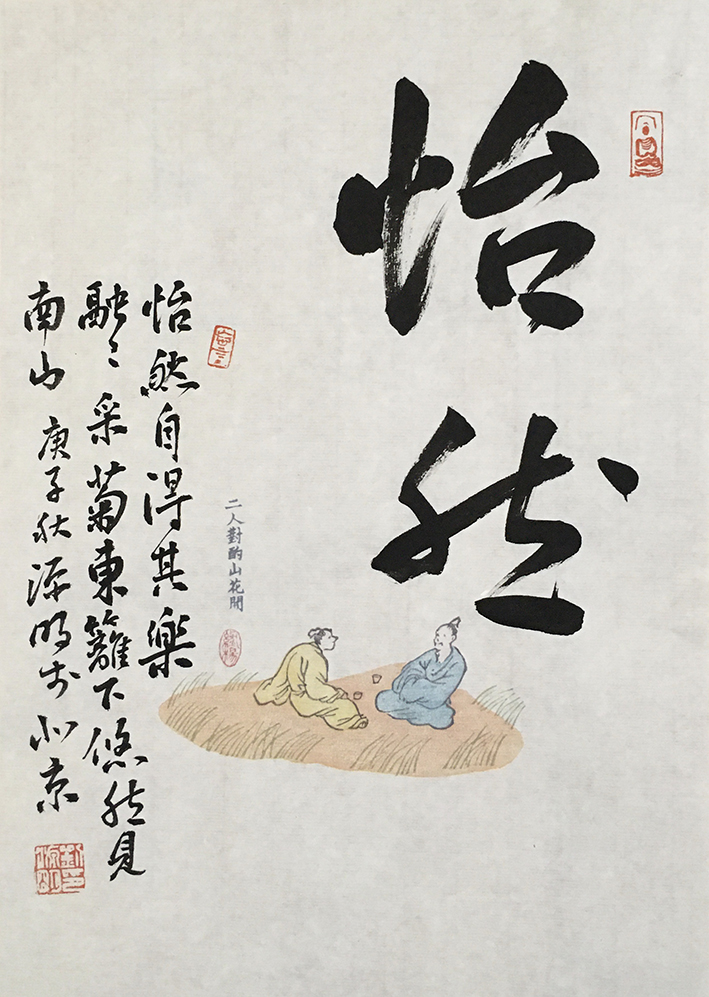 怡然
怡然自得其樂
融々采菊東籬下悠然見
南山 庚子秋源明于北京
二人對酌山花開